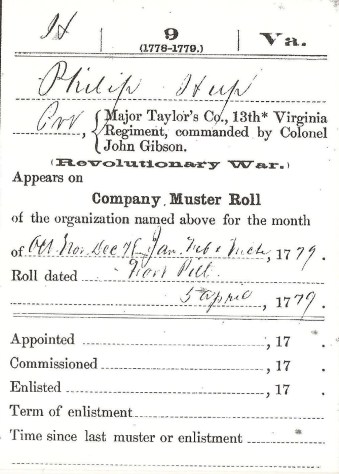 H | 9 | Va.
(1778-1779.)
Philip
Major Taylor's Co., 13th* Virginia
Regiment, commanded by Colonel
John Gibson.
(Revolutionary War.)
Appears on
Company Muster Roll
of the organization named above for the month
of Oct. Nov. Dec 78 Jan. Feb & Mch, 1779.
Roll dated Fort Pitt
5 April, 1779.
Appointed, 17 .
Commissioned, 17 .
Enlisted, 17 .
Term of enlistment
Time since last muster or enlistment